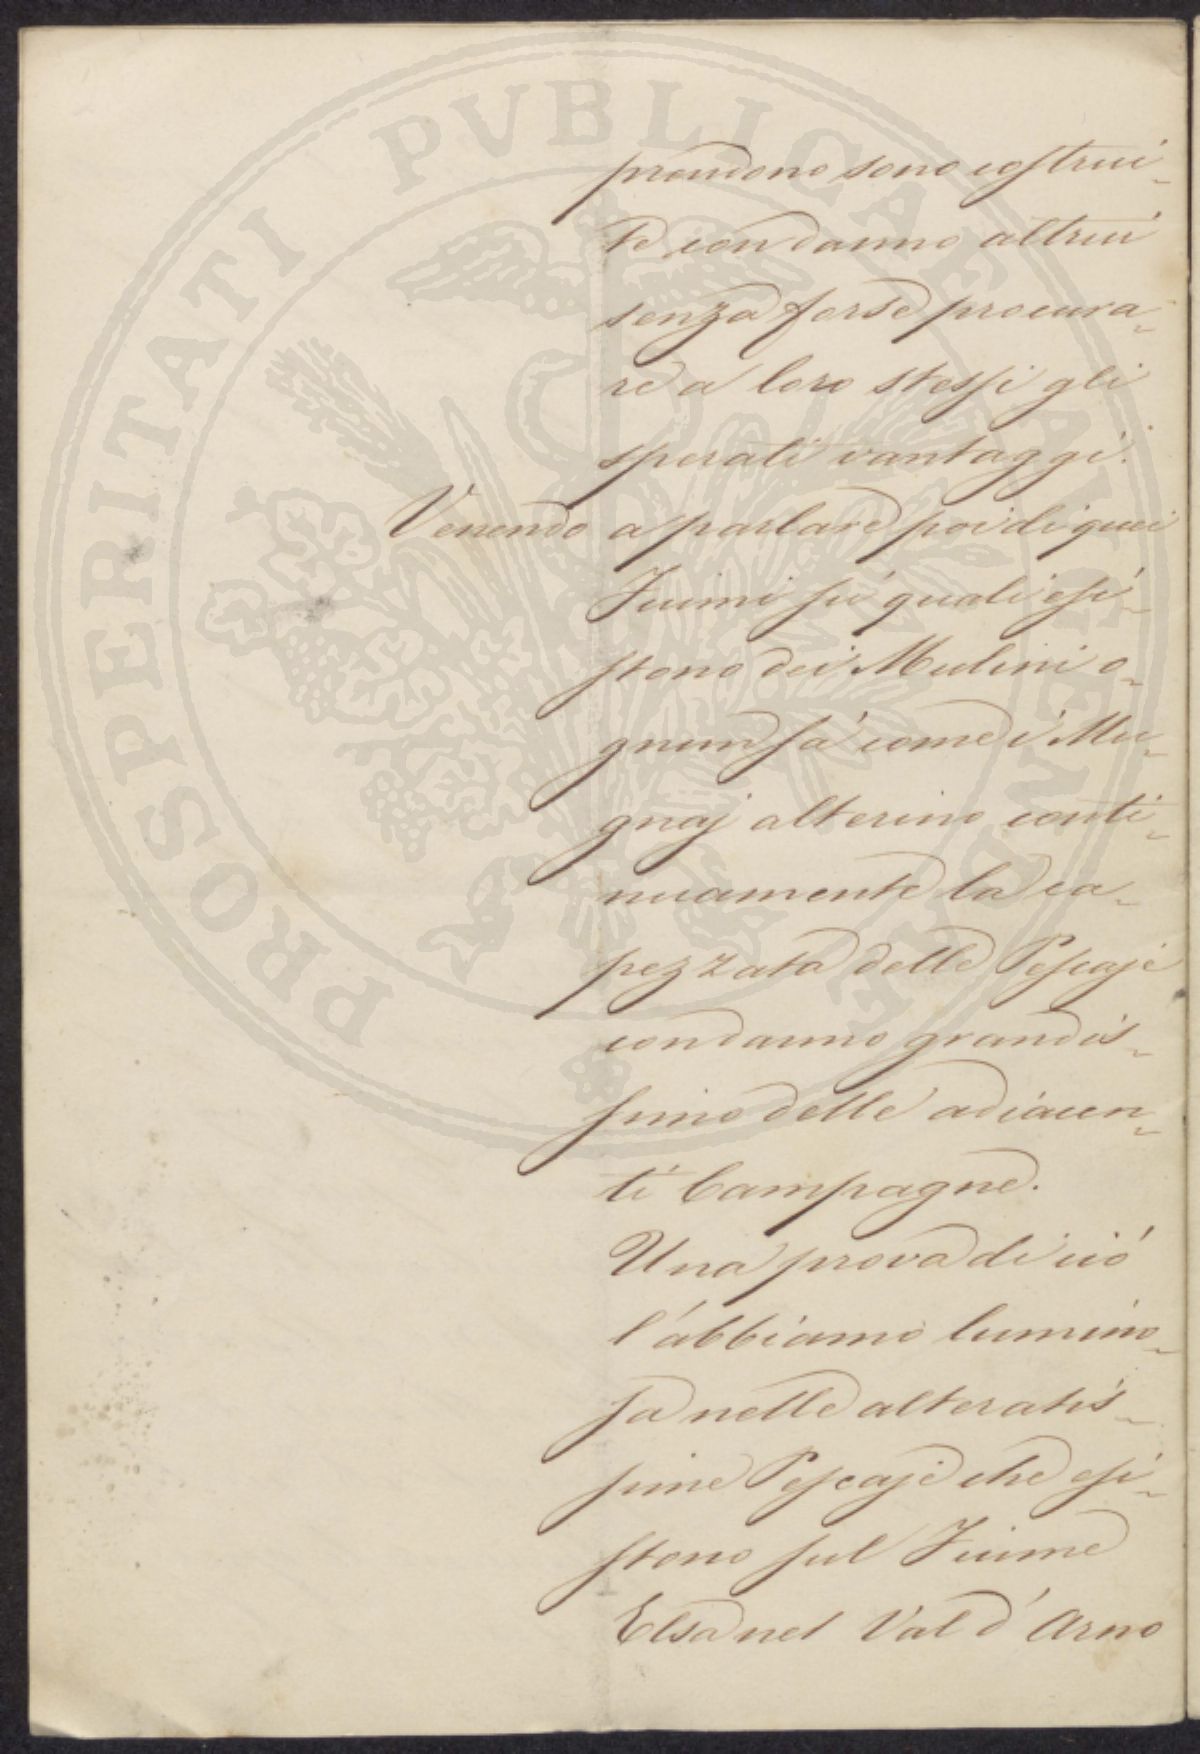 PROSPERITATI PVBLICAE AVGENDAE
prendono sono costrui-
te con danno altrui
senza forse procura-
re a loro stessi gli
sperati vantaggi.
Venendo a parlare poi di quei
Fiumi sú quali esi-
stono dei Mulini o-
gnuno sá come i Mu-
gnaj alterino conti-
nuamente la ca-
pezzata delle Pescaje
con danno grandis-
simo delle adiacen-
ti Campagne.
Una prova di ció
l'abbiamo lumino-
sa nelle alteratis-
sime Pescaje che esi-
stono sul Fiume
Elsa nel Val d'Arno